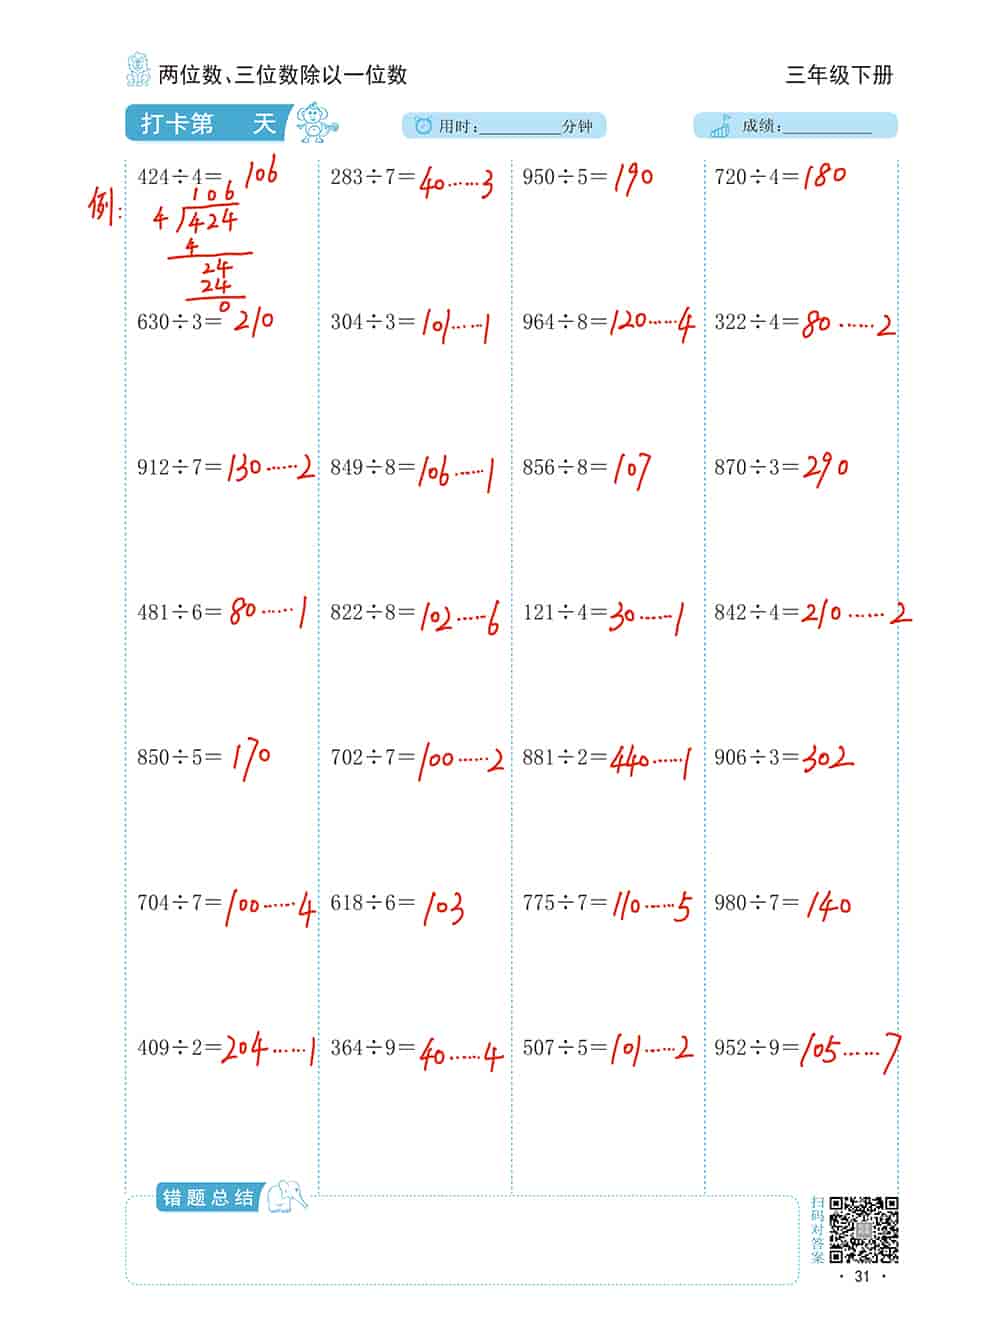 两位数、三位数除以一位数 三年级下册
打卡第 天 用时:________分钟 成绩:________
424÷4= 106 283÷7= 40……3 950÷5= 190 720÷4= 180
例: 106
4 424
4
24
24
0
630÷3= 210 304÷3= 101……1 964÷8= 120……4 322÷4= 80……2
912÷7= 130……2 849÷8= 106……1 856÷8= 107 870÷3= 290
481÷6= 80……1 822÷8= 102……6 121÷4= 30……1 842÷4= 210……2
850÷5= 170 702÷7= 100……2 881÷2= 440……1 906÷3= 302
704÷7= 100……4 618÷6= 103 775÷7= 110……5 980÷7= 140
409÷2= 204……1 364÷9= 40……4 507÷5= 101……2 952÷9= 105……7
错题总结
扫码对答案
· 31 ·